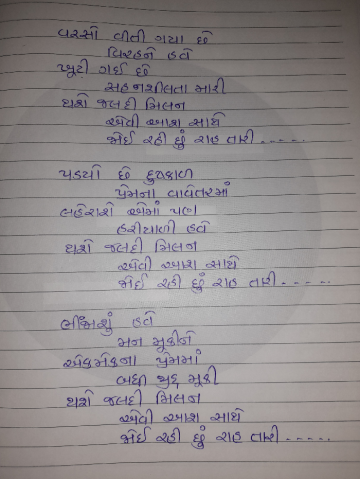 વરસો વીતી ગયા છે
વિરહને હવે
ખૂટી ગઈ છે
સહનશીલતા મારી
થશે જલદી મિલન
એવી આશ સાથે
જોઈ રહી છું રાહ તારી.....
પડયો છે દુષ્કાળ
પ્રેમના વાવેતરમાં
લહેરાશે એમાં પણ
હરીયાળી હવે
થશે જલદી મિલન
એવી આશ સાથે
જોઈ રહી છું રાહ તારી.....
ભીંજાશું હવે
મન મૂકીને
એકમેકના પ્રેમમાં
બધી જીદ્દ મૂકી
થશે જલદી મિલન
એવી આશ સાથે
જોઈ રહી છું રાહ તારી.....